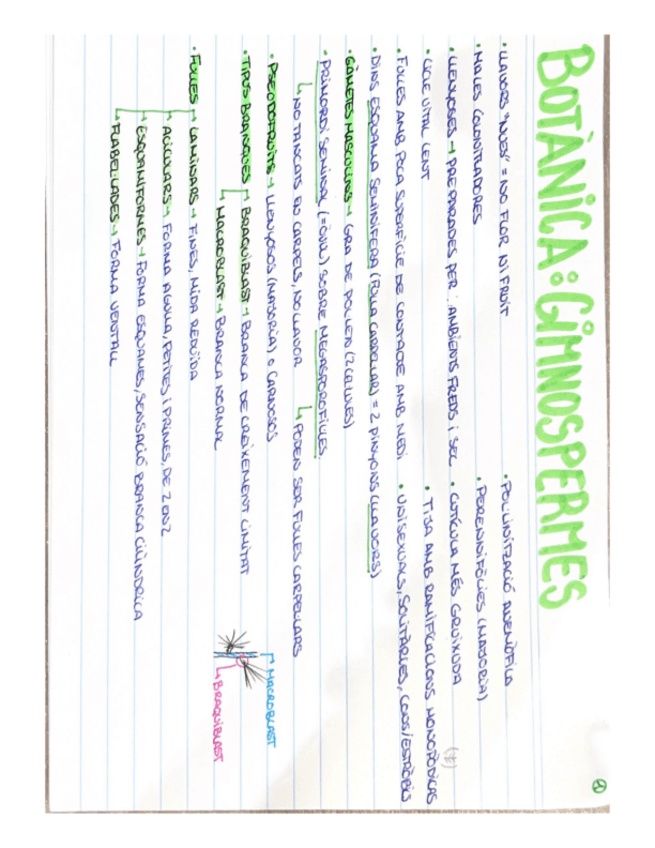 BOTÀNICA: GIMNOSPERMES
• LLAVORS "NUES" = NO FLOR NI FRUIT
• POL·LINITZACIÓ ANEMÒFILA
• MALES COLONITZADORES
• PERENNIFÒLIES (MAJORIA)
• LLENYOSES → PREPARADES PER: AMBIENTS FREDS I SEC
• CUTÍCULA MÉS GRUIXUDA
• CICLE VITAL LENT
• TIJA AMB RAMIFICACIONS MONOPÒDIQUES
• FULLES AMB POCA SUPERFÍCIE DE CONTACTE AMB MEDI
• UNISEXUALS, SOLITÀRIES, CONS/ESTRÒBILS
• DINS ESQUAMA SEMINÍFERA (FULLA CARPEL·LAR) = 2 PINYONS (LLAVORS)
• GÀMETES MASCULINS → GRA DE POL·LEN (2 CÈL·LULES)
• PRIMORDI SEMINAL (=ÒVUL) SOBRE MEGASPOROFIL·LES
↳ NO TANCATS EN CARPELS, NO LLAVOR
↳ PODEN SER FULLES CARPEL·LARS
• PSEUDOFRUITS → LLENYOSOS (MAJORIA) O CARNOSOS
• TIPUS BRANQUES → BRAQUIBLAST → BRANCA DE CREIXEMENT LIMITAT
↳ MACROBLAST → BRANCA NORMAL
MACROBLAST
BRAQUIBLAST
• FULLES → LAMINARS → FINES, MIDA REDUÏDA
→ ACICULARS → FORMA AGULLA, PETITES I PRIMES, DE 2 EN 2
→ ESQUAMIFORMES → FORMA ESQUAMES, SENSACIÓ BRANCA CILÍNDRICA
→ FLABEL·LADES → FORMA VENTALL